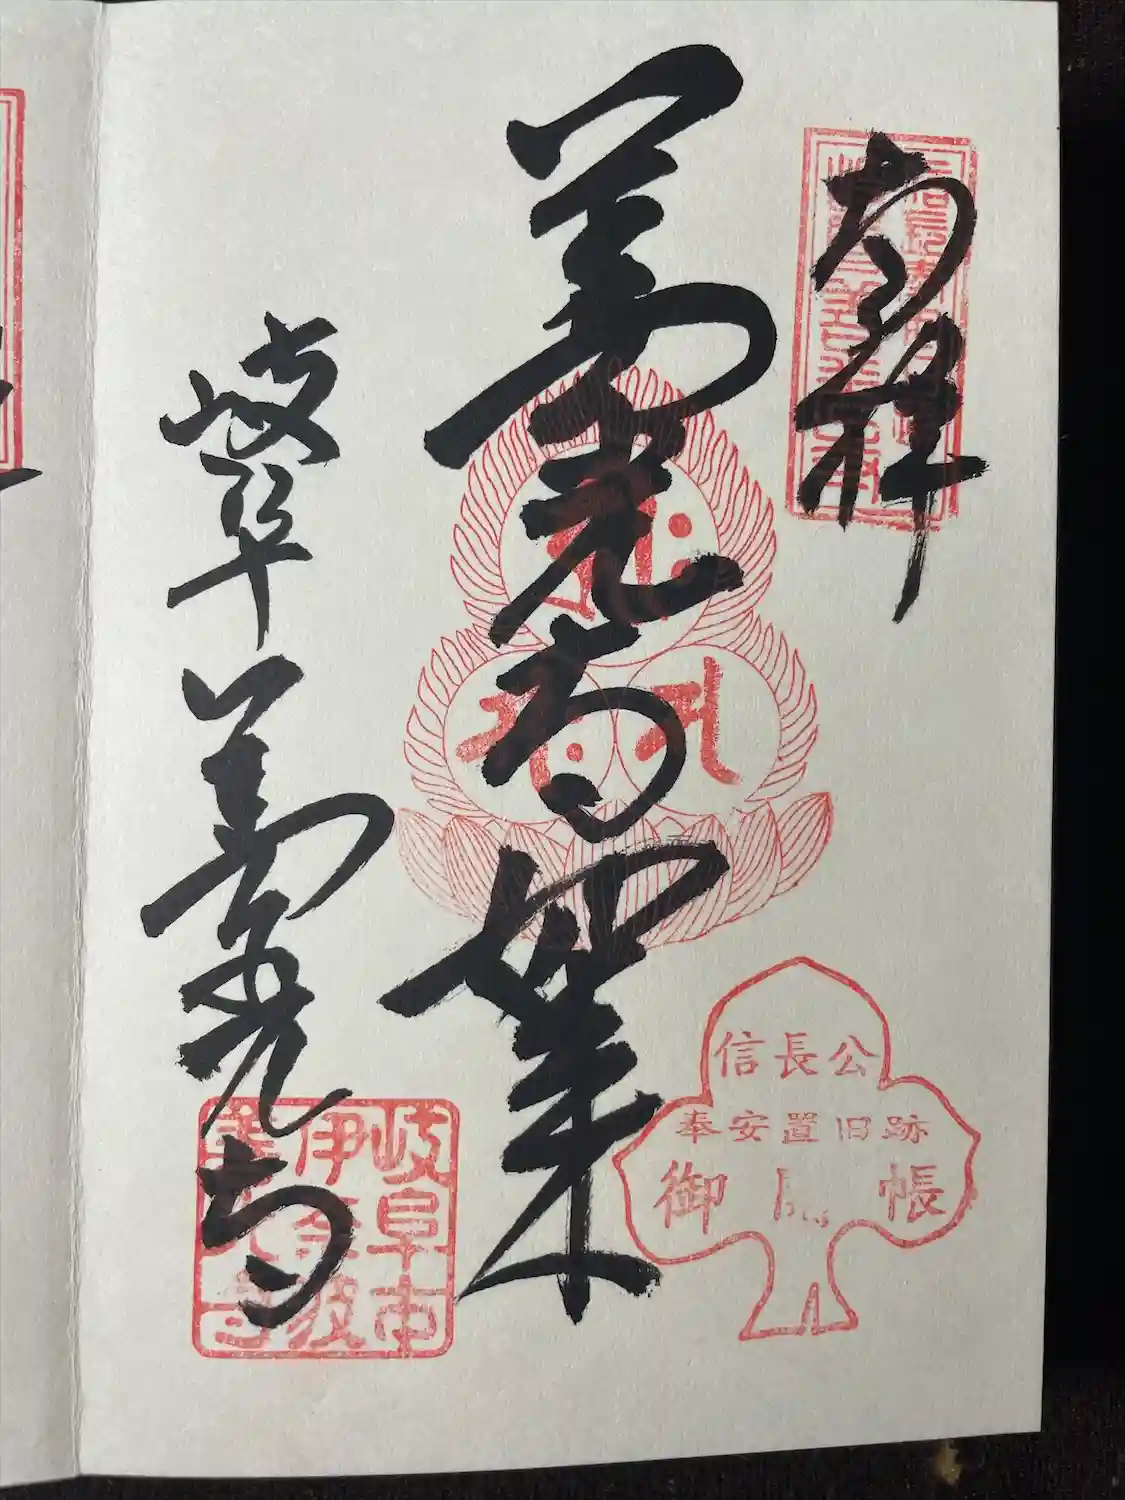 奉拝
善光寺如来
岐阜善光寺
信長公
奉安置旧跡
御 帳
岐阜市
伊奈波
善光寺